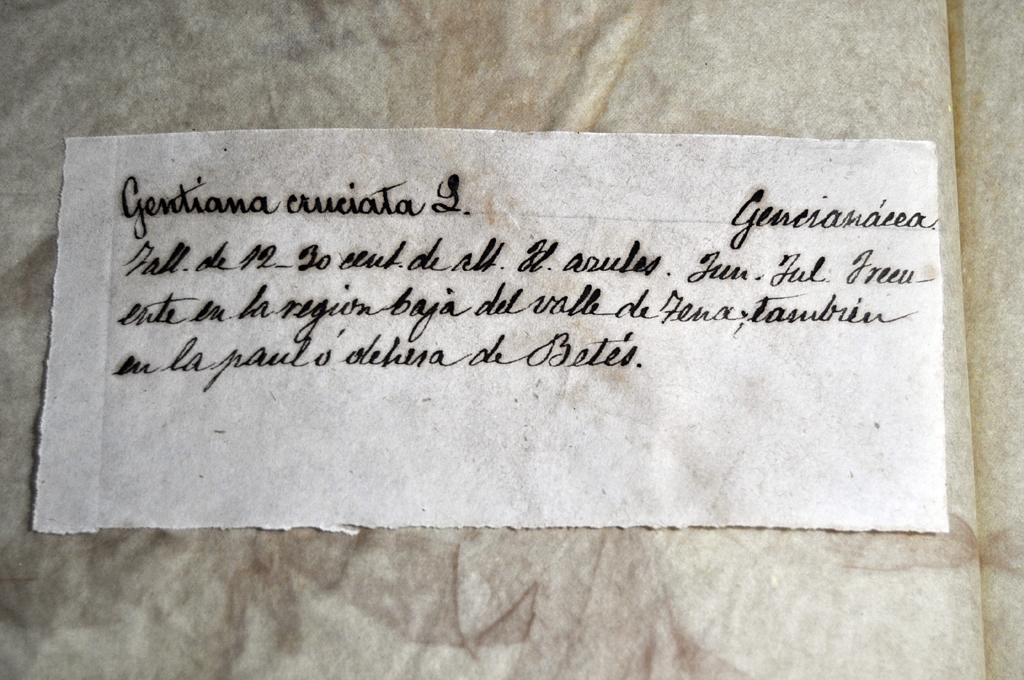 Gentiana cruciata L. Gencianácea.
Tall. de 12-30 cent. de alt. Fl. azules. Jun. Jul. Frecu-
ente en la region baja del valle de Tena; también
en la paul ó dehesa de Betés.